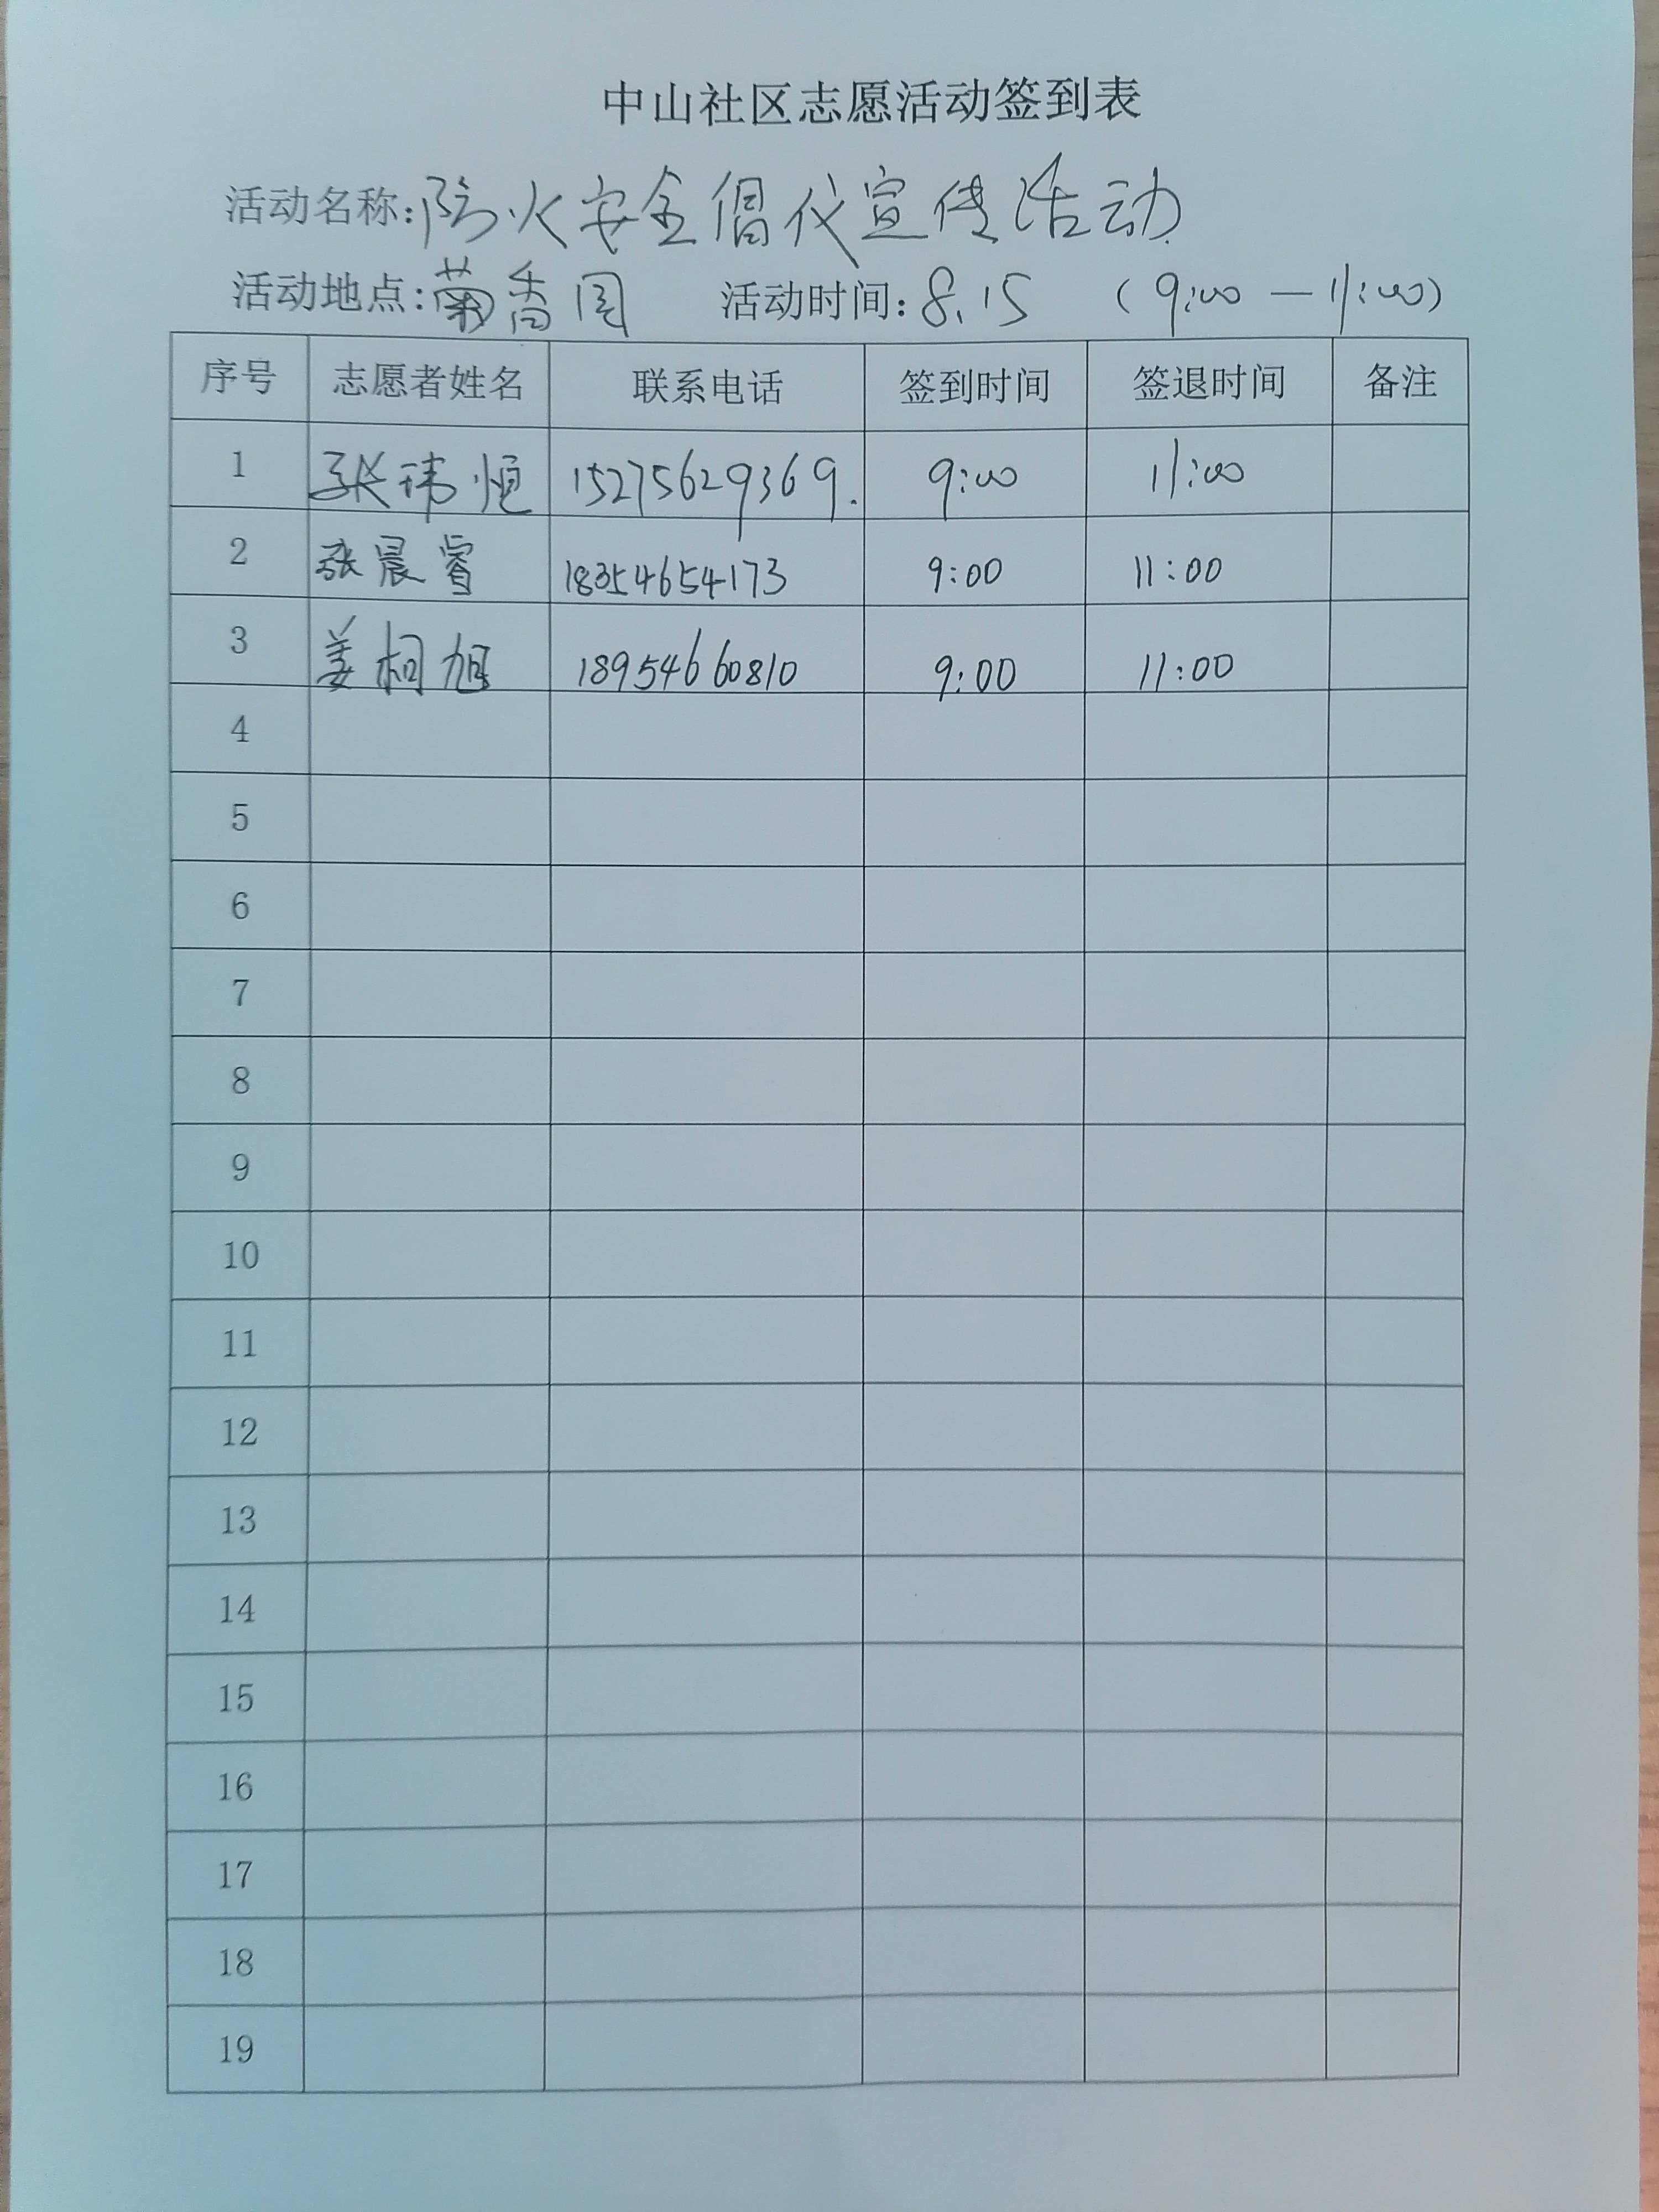 中山社区志愿活动签到表
活动名称:防火安全倡议宣传活动
活动地点:菊香园 活动时间:8.15 (9:00—11:00)
序号 志愿者姓名 联系电话 签到时间 签退时间 备注
1 张玮恒 15275629369. 9:00 11:00
2 张晨睿 18354654173 9:00 11:00
3 姜柯旭 18954660810 9:00 11:00
4
5
6
7
8
9
10
11
12
13
14
15
16
17
18
19